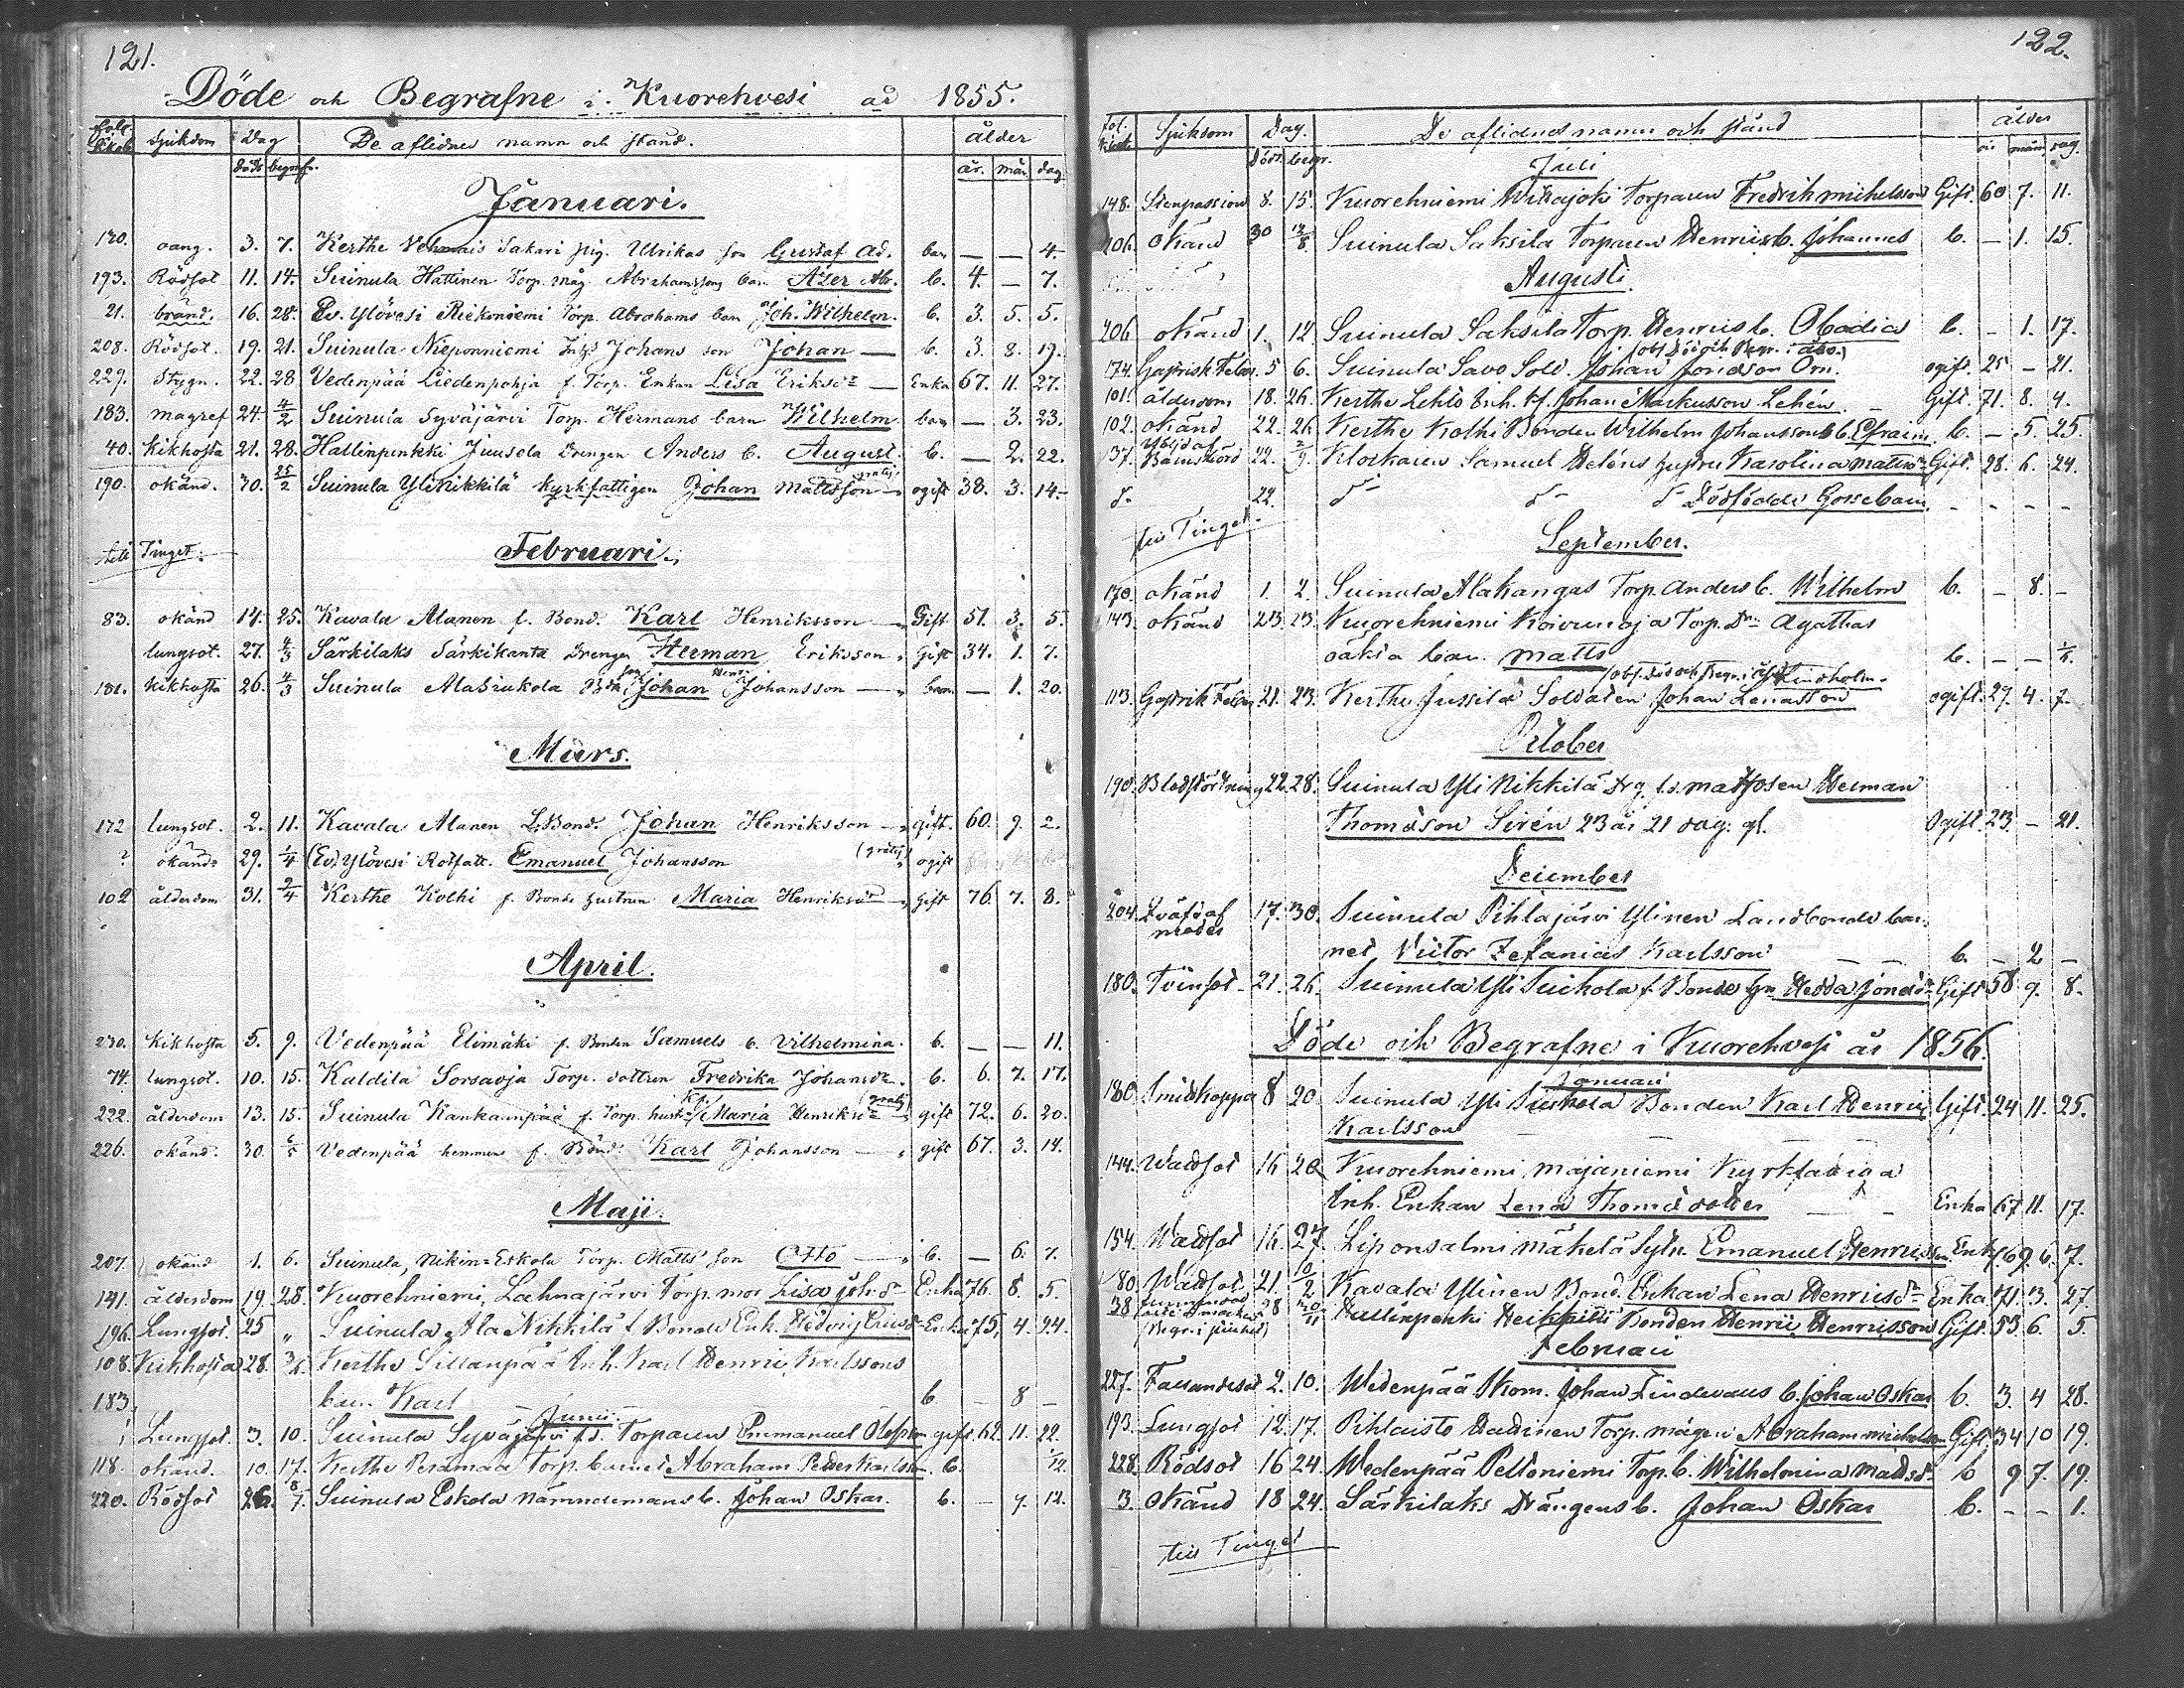 121.
Döde och Begrafne i Kuorehvesi ad 1855.
Sjukdom Dag De aflidnes namn och stånd. ålder
döde begrafn. år. mån dag
Januari.
120. oang. 3. 7. Kerthe Sakari pig. Ulrikas son Gustaf Ad. barn — — 4.
193. Rödsot 11. 14. Suinula Hattinen Torp. måg Abrahamssons barn Abr. b. 4. — 7.
21. bränd. 16. 28. Ev. Ylövesi Riekoniemi Torp. Abrahams barn Joh. Wilhelm. b. 3. 5. 5.
208. Rödsot. 19. 21. Suinula Nieponniemi Johans son Johan — b. 3. 8. 19.
229. Stygn. 22. 28 Vedenpää Liedenpohja f. Torp. Enkan Lisa Eriksdr — Enka 67. 11. 27.
183. magref 24. 4/2 Suinula Syväjärvi Torp. Hermans barn Wilhelm barn — 3. 23.
40. Kikhosta 21. 28. Hallinpenkki Juusela Drengen Anders b. August. b. — 2. 22.
190. okänd. 30. 25/2 Suinula Ylinikkilä kyrkfattigen Johan Mattsson gratis ogift 38. 3. 14.
till Tinget.
Februari.
83. okänd 14. 25. Kavala Alanen f. Bond. Karl Henriksson — Gift 51. 3. 5.
lungsot. 27. 4/3 Särkilaks Särkikanta Drengen Herman Eriksson Gift 34. 1. 7.
181. Kikhosta 26. 4/3 Suinula Alasiukola Johan Johansson — barn — 1. 20.
Mars.
172 lungsot. 2. 11. Kavala Alanen L.Bond. Johan Henriksson — gift. 60. 9. 2.
? okänd 29. 1/4 (Ev) Ylövesi Rotfatt. Emanuel Johansson (gratis) ogift
102 ålderdom 31. 9/4 Kerthe Kolhi f. Bonde hustrun Maria Henriksdr — gift 76. 7. 8.
April.
230. Kikhosta 5. 9. Vedenpää Elimäki f. Bonden Samuels b. Vilhelmina. b. — — 11.
74. lungsot. 10. 15. Kaldila Sorsavja Torp. dottren Fredrika Johansdr. b. 6. 7. 17.
222. ålderdom 13. 15. Suinula Kankaanpää f. Torp. hustr. Maria Henriksdr (gratis) gift 72. 6. 20.
226. okänd. 30. 6/5 Vedenpää hemman f. Bond. Karl Johansson — gift 67. 3. 14.
Maji.
207. okänd 1. 6. Suinula, Nikin-Eskola Torp. Matts son Otto — b. — 6. 7.
141. ålderdom 19. 28. Kuorehniemi, Lahnajärvi Torp. mor Lisa Joh.dr Enka 76. 8. 5.
196. Lungsot. 25 „ Suinula Ala Nikkilä f. Bonde Enk. Hedvig Enka 75, 4. 24.
108. Kikhosta 28. 3/6. Kerthe Sillanpää Inh. Karl Henric Karlssons
183. barn Karl b. — 8 —
Junii.
Lungsot. 3. 10. Suinula Syväjärvi f.d. Torparen Emmanuel gift. 62. 11. 22.
118. okänd. 10. 17. Kerthe Torp. barnet Abraham Petter Karlsson. b. 1/12.
220. Rödsot 26. 8/7. Suinula Eskola Nämndemans b. Johan Oskar. b. — 7. 12.
122.
Sjukdom Dag. De aflidnes namn och stånd ålder
Död. begr. år mån. dag.
Juli
148. Stenpassion 8. 15. Kuorehniemi Wihajoki Torparen Fredrik Michelsson Gift. 60 7. 11.
206. okänd 30 12/8 Suinula Saksila Torparen Henrics b. Johannes b. — 1. 15.
Augusti.
206 okänd 1. 12 Suinula Saksila Torp. Henrics b. Obadia b. — 1. 17.
174. Gastrisk Feber. 5 6. Suinula Savo Sold. Johan Jonsson Orn. (obs. Död och Begr. i Åbo.) ogift. 25 — 21.
101. ålderdom 18. 26. Kerthe Lehto Inh. Johan Markusson Lehén — Gift. 71. 8. 4.
102. okänd 22. 26 Kerthe Kolhi Bonden Wilhelm Johanssons b. Efraim. b. — 5. 25.
137. Barnsbörd 22. 2/9. Klockaren Samuel Heléns hustru Karolina Mattsdr Gift. 28. 6. 24.
d:o 22. Dödfödde Gossebarn. - - - -
till Tinget.
September.
170. okänd 1. 2. Suinula Alakangas Torp. Anders b. Wilhelm b. — 8. —
143. okänd 23. 23. Kuorehniemi Koivunoja Torp. Dr. Agathas
oäkta barn Matts b. — —
113. Gastrisk Feber 21. 23. Kerthe Jussila Soldaten Johan Lenasson Lindholm. (obs. Död och begr. i Åbo) ogift. 29. 4. 7.
October
190. Blodstörtning 22. 28. Suinula Yli Nikkilä Drg. f.d. matrosen Herman
Thomasson Sirén 23 år 21 dag. gl. Ogift. 23. — 21.
December
204. Qväfd af moder 17. 30. Suinula Pihlajärvi Ylinen Landbonde bar-
net Victor Zefanias Karlsson — — b. — 2 —
180. Tvinsot — 21. 26. Suinula Yli Siukola f. Bonde hu. Hedda Jonasdr Gift 58 9. 8.
Döde och Begrafne i Kuorehvesi år 1856.
Januari
180 Smittkoppa 8 20 Suinula Yli Siukola Bonden Karl Henric Gift. 24 11. 25.
Karlsson
144. Wattsot 16 20 Kuorehniemi, Majaniemi Kyrkfattiga
Inh. Enkan Lena Thomas dotter — — Enka 67 11. 17.
154. Wattsot 16. 27. Liponsalmi Mäkelä Sytn. Emanuel Henricsson Enkl. 69. 6. 7.
80. Wattsot 21. 10/2 Kavala Ylinen Bond. Enkan Lena Henricsdr Enka 71. 3. 27.
38 28 Hallinpenki Heikkilä Bonden Henric Henricsson Gift. 53 6. 5.
Februari
227. Fallandesot 2. 10. Wedenpää Skom. Johan Lindevalls b. Johan Oskar b. 3. 4 28.
193. Lungsot 12. 17. Pihlaisto Hattinen Torp. mågen Abraham Michelsson Gift. 34 10 19.
228. Rödsot 16 24. Wedenpää Peltoniemi Torp. b. Wilhelmina Mattsdr b 9 7. 19.
3. okänd 18 24. Särkilaks Drängens b. Johan Oskar b. — — 1.
till Tinget